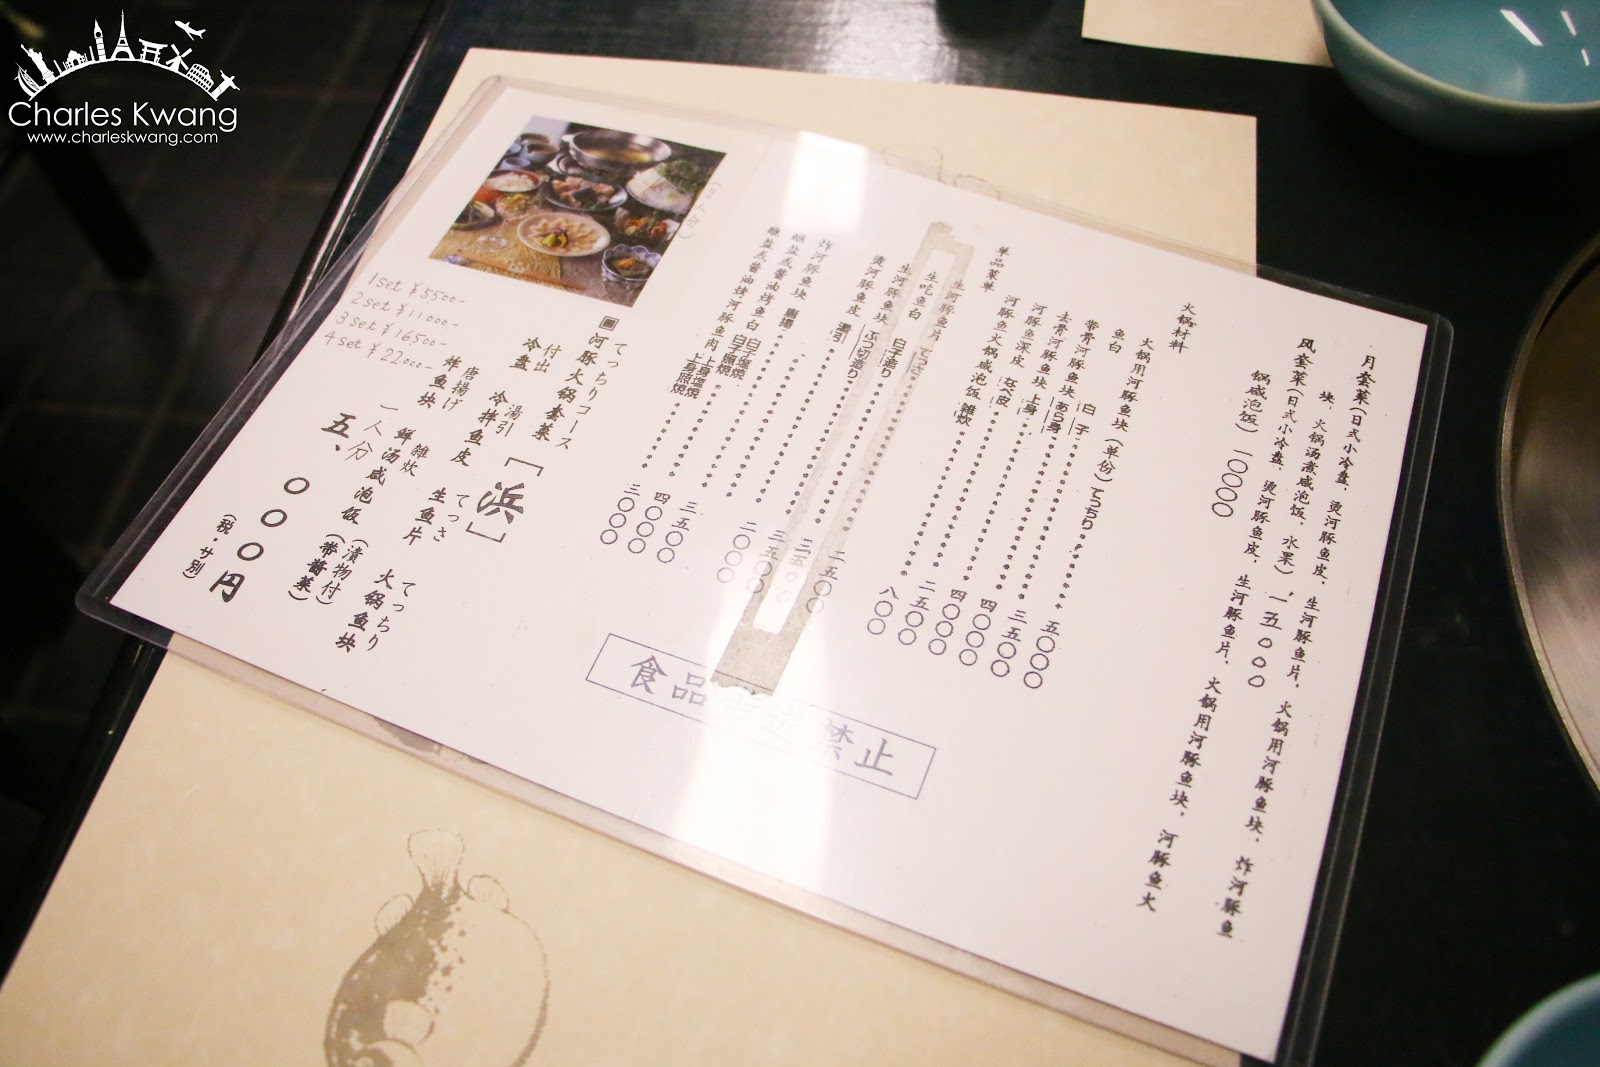 Charles Kwang
www.charleskwang.com
月套菜(日式小冷盘，烫河豚鱼皮，生河豚鱼片，火锅用河豚鱼块，炸河豚鱼
块，火锅汤煮咸泡饭，水果) 一五〇〇〇
风套菜(日式小冷盘，烫河豚鱼皮，生河豚鱼片，火锅用河豚鱼块，河豚鱼火
锅咸泡饭) 一〇〇〇〇
火锅材料
火锅用河豚鱼块(单份) てっちり 五〇〇〇
鱼白 白子 三五〇〇
带骨河豚鱼块 あら身 四〇〇〇
去骨河豚鱼块 上身 四〇〇〇
河豚鱼深皮 二五〇〇
河豚鱼火锅咸泡饭 雑炊 八〇〇
单品菜单
生河豚鱼片 てっさ
生吃鱼白 白子造り
生河豚鱼块 ぶつ切造り
烫河豚鱼皮 湯引 二五〇〇
炸河豚鱼块 唐揚
蘸盐或酱油烤鱼白 白子塩焼 白子照焼
蘸盐或酱油烤河豚鱼肉 上身塩焼 上身照焼
三五〇〇
二〇〇〇
三五〇〇
四〇〇〇
三〇〇〇
食品 禁止
1set ¥5500-
2set ¥11000-
3set ¥16500-
4set ¥22000-
てっちりコース
河豚火锅套菜 「浜」
付出 湯引 てっさ てっちり
冷盘 冷拌鱼皮 生鱼片 火锅鱼块
唐揚げ 雑炊 (漬物付)
炸鱼块 鲜汤咸泡饭 (带酱菜)
一人分
五、〇〇〇円
(税・サ別)